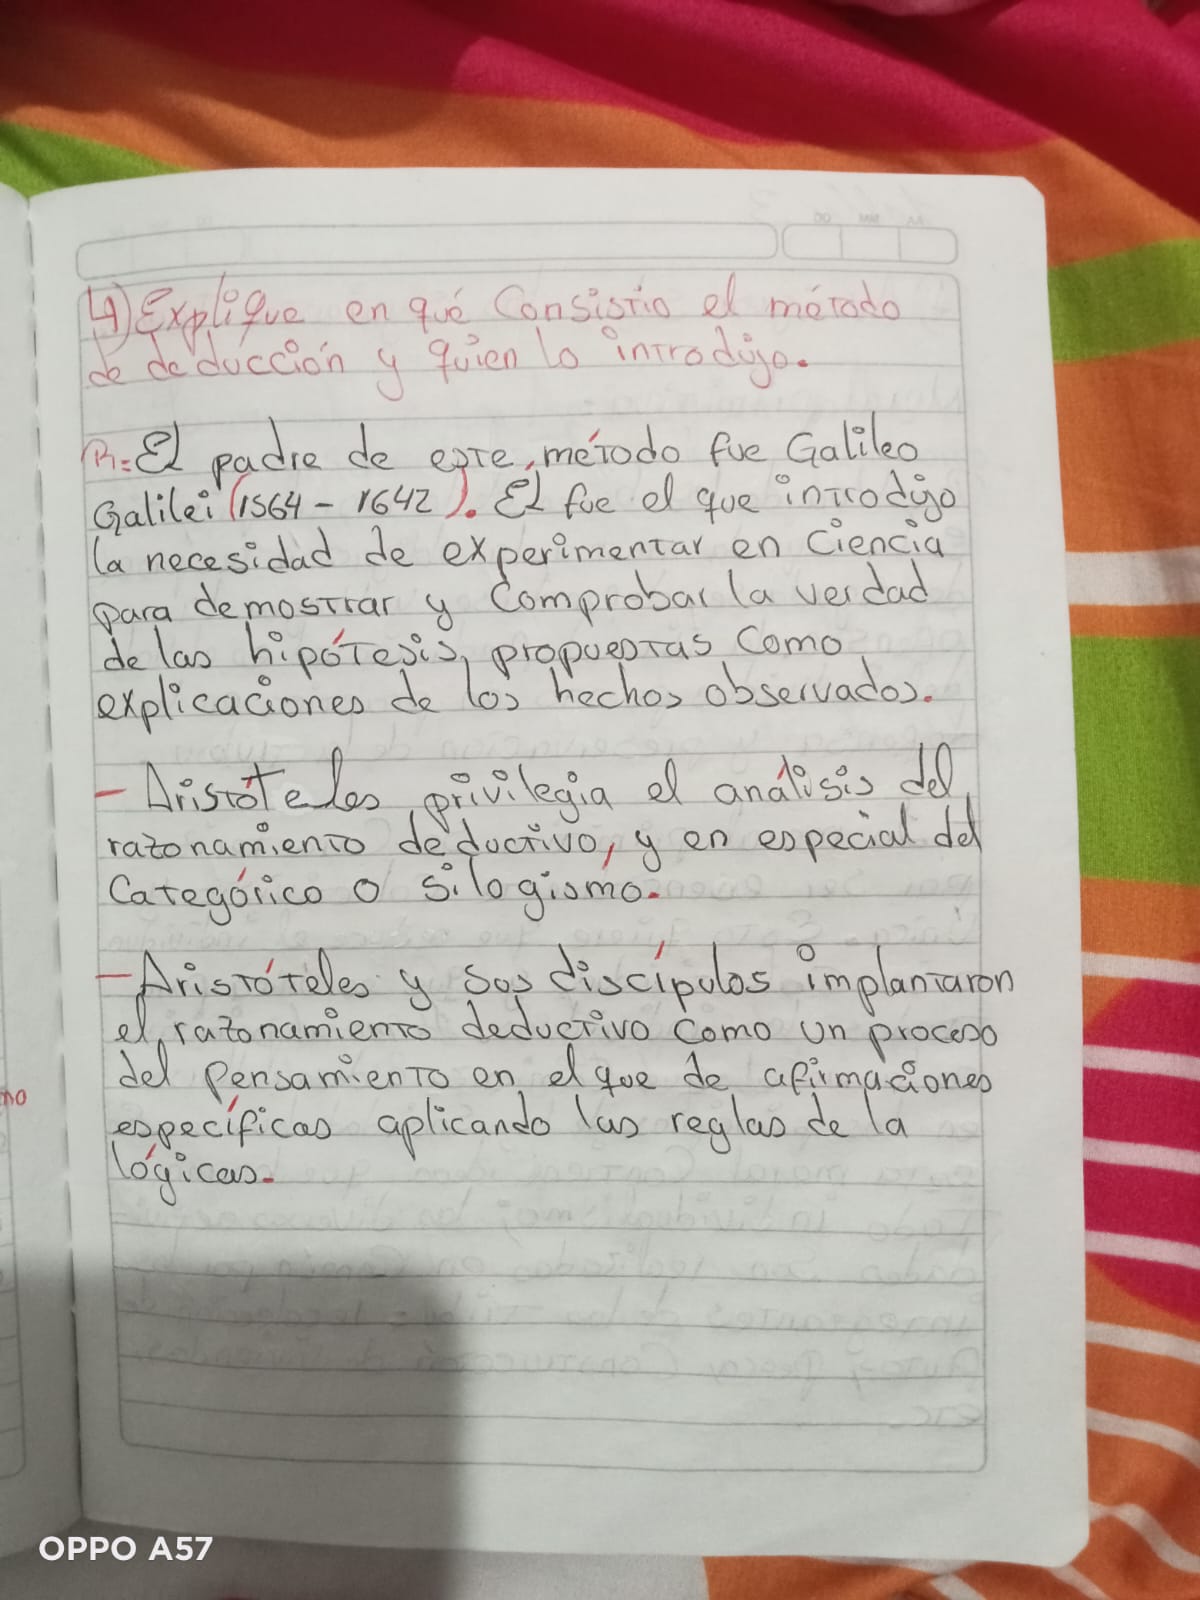 4) Explique en qué Consistio el método
de deducción y quien lo introdujo.
R= El padre de este, método fue Galileo
Galilei (1564 - 1642). El fue el que introdujo
la necesidad de experimentar en Ciencia
para demostrar y Comprobar la verdad
de las hipótesis, propuestas Como
explicaciones de los hechos observados.
- Aristóteles privilegia el análisis del
razonamiento deductivo, y en especial del
Categórico o silogismo.
- Aristóteles y sus discípulos implantaron
el razonamiento deductivo Como un proceso
del Pensamiento en el que de afirmaciones
específicas aplicando las reglas de la
lógicas.
no
OPPO A57